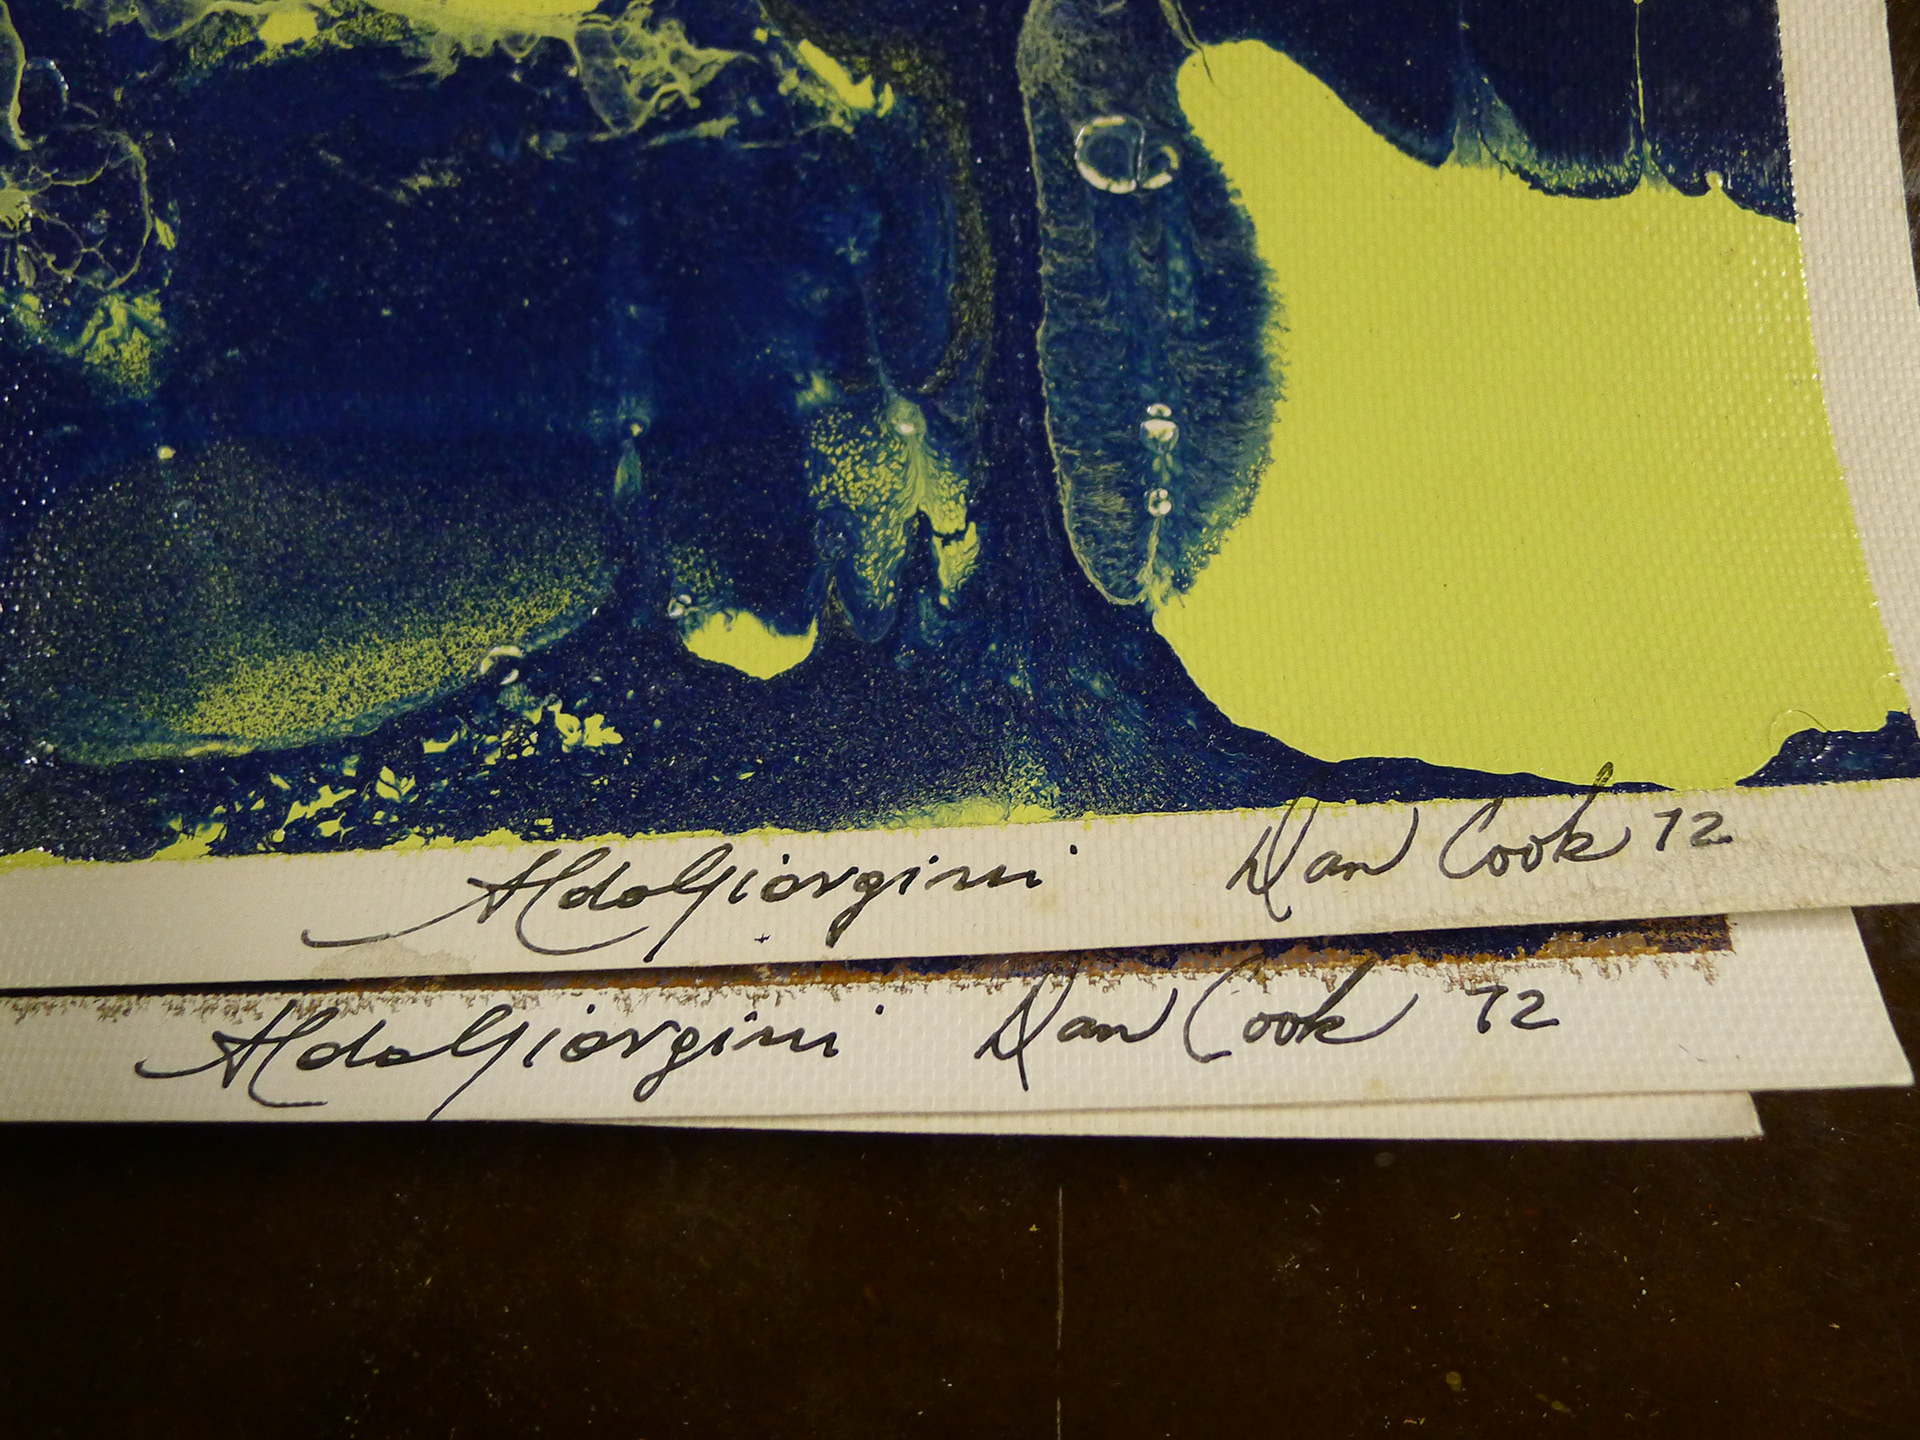 Aldo Giorgini Dan Cook 72
Aldo Giorgini Dan Cook 72